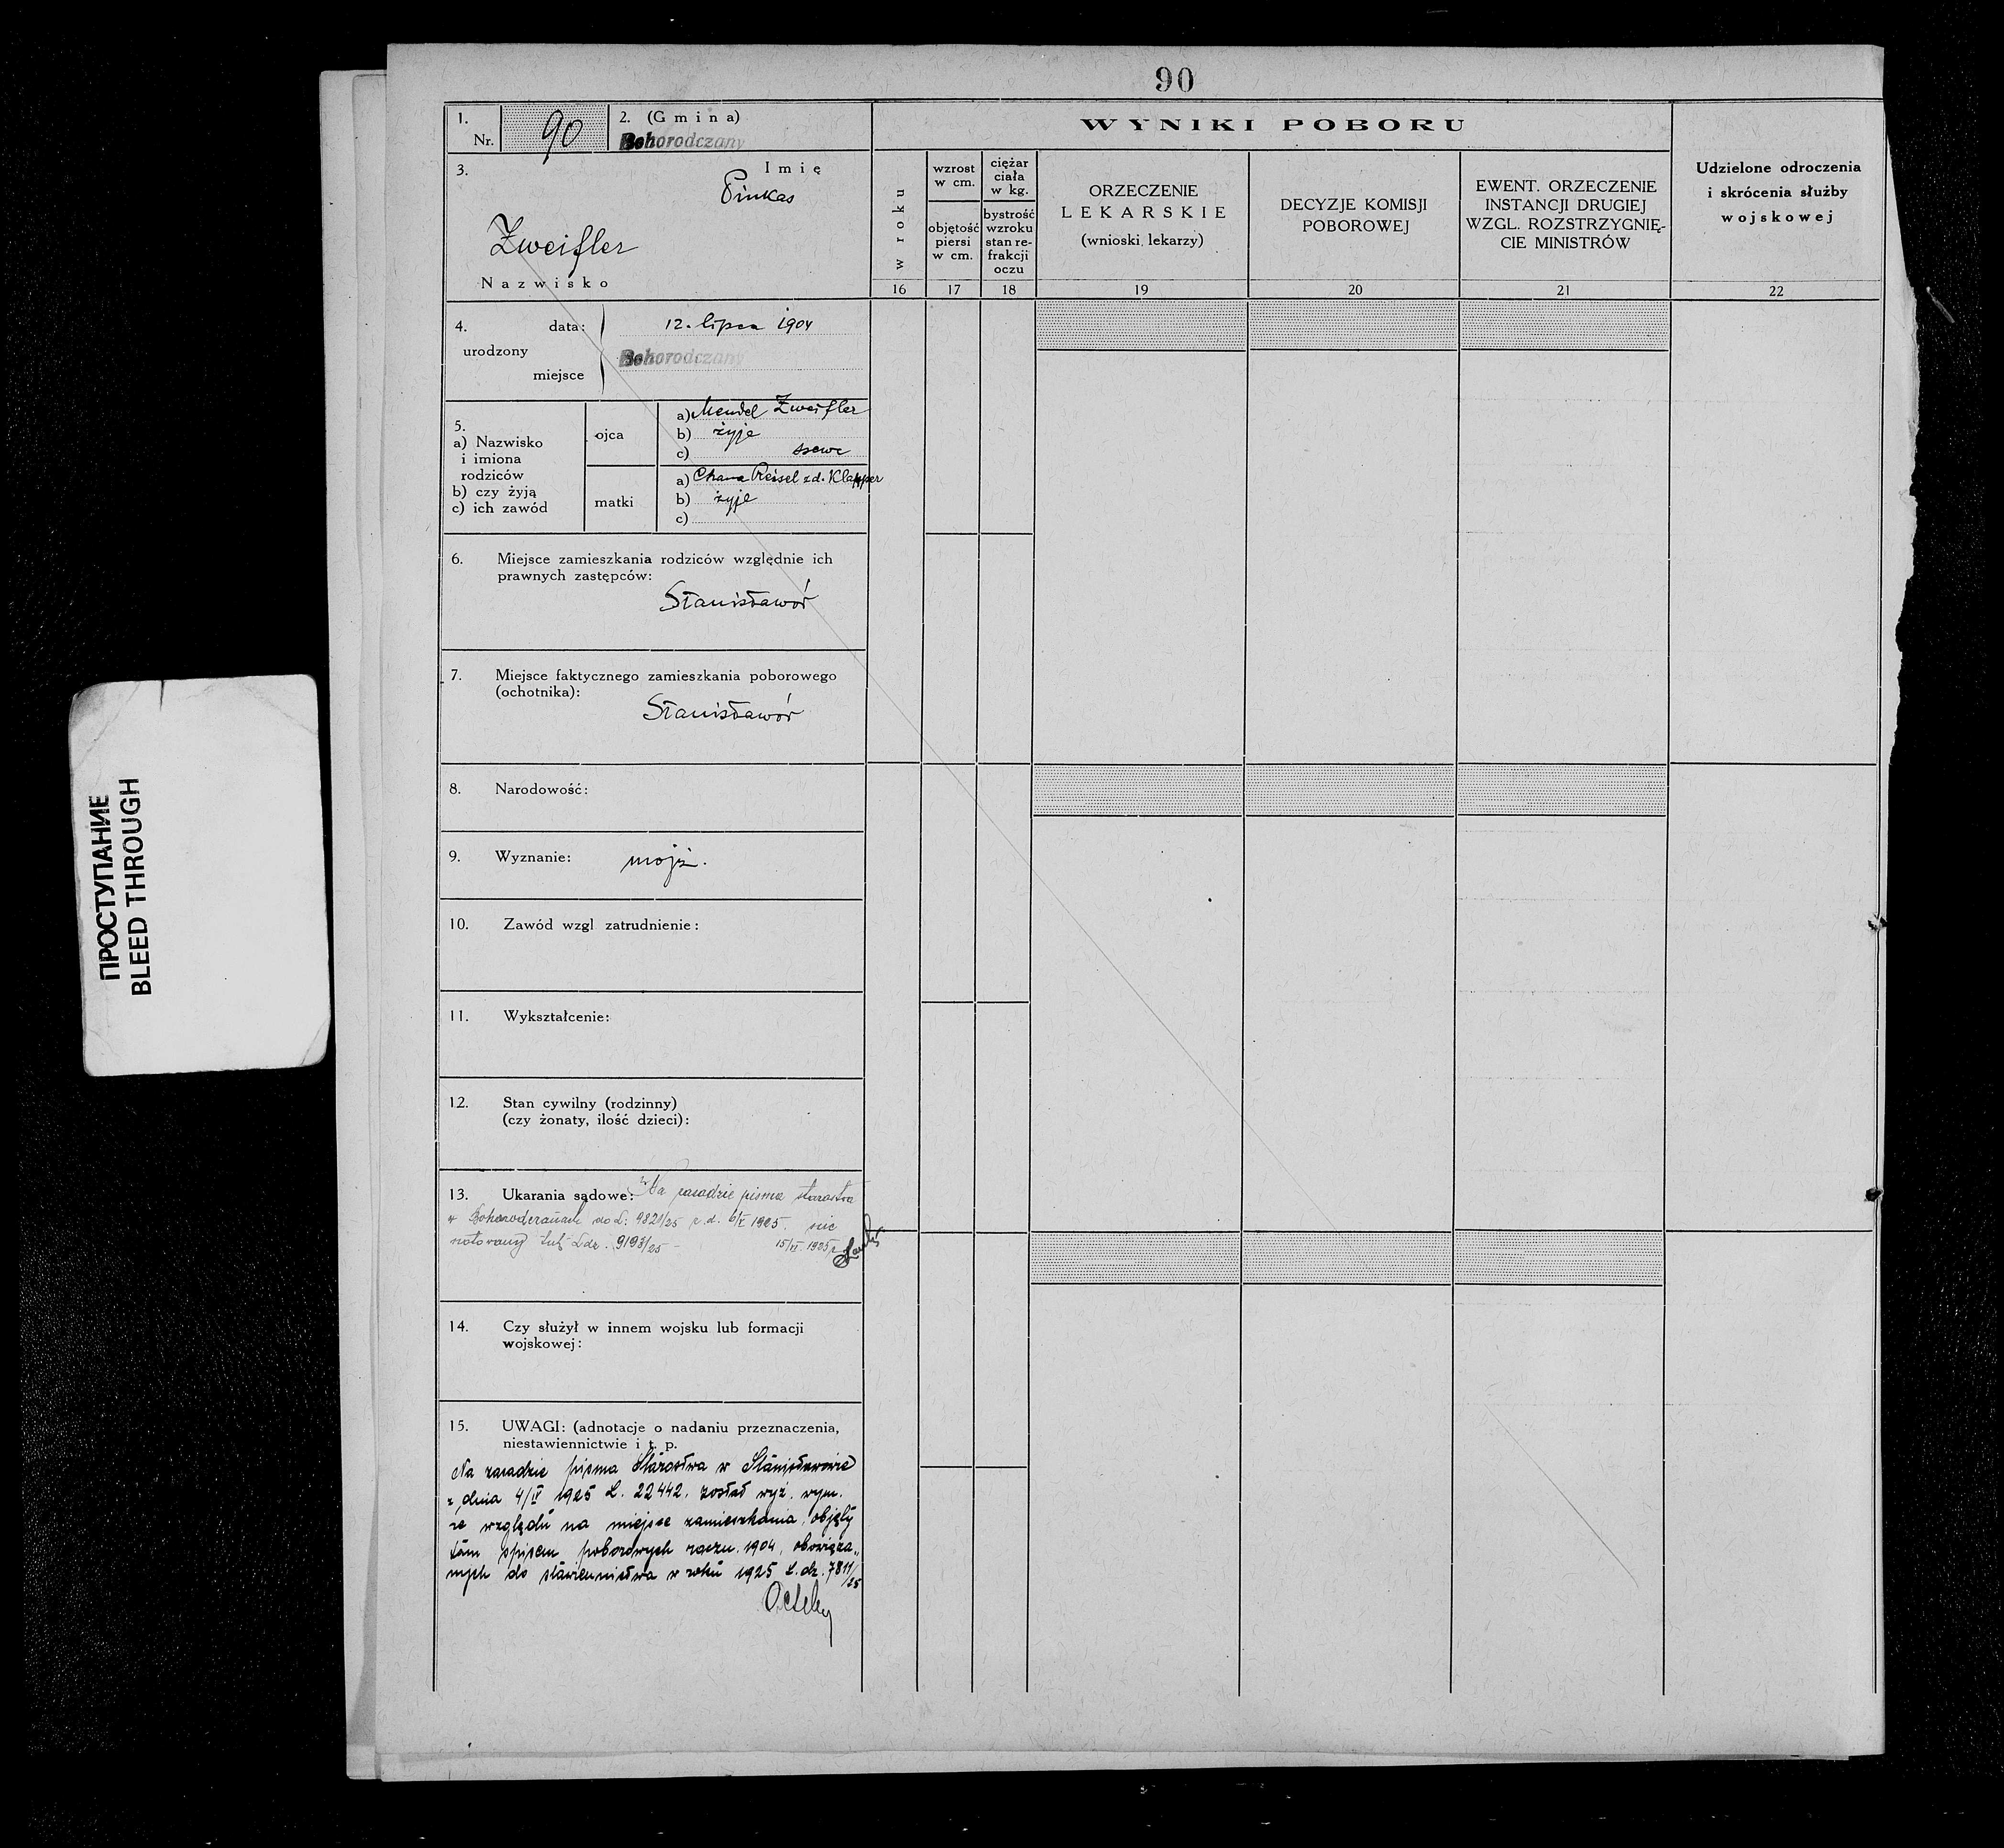 90
1.
Nr. 90
2. (Gmina)
Bohorodczany
3.
Imię
Pinkas
Zweifler
Nazwisko
4.
urodzony
data: 12. lipca 1904
miejsce
Bohorodczany
5.
a) Nazwisko
i imiona
rodziców
b) czy żyją
c) ich zawód
ojca
a) Mendel Zweifler
b) żyje
c) szewc
matki
a) Chana Reisel zd. Klapper
b) żyje
c)
6. Miejsce zamieszkania rodziców względnie ich
prawnych zastępców:
Stanisławów
7. Miejsce faktycznego zamieszkania poborowego
(ochotnika):
Stanisławów
8. Narodowość:
9. Wyznanie: mojż.
10. Zawód wzgl zatrudnienie:
11. Wykształcenie:
12. Stan cywilny (rodzinny)
(czy żonaty, ilość dzieci):
13. Ukarania sądowe: Na zasadzie pisma starostwa
w do L: 9821/25 z. d. 1925. nie
notowany tut. L.dz. 9193/25 15/VI 1925 r.
14. Czy służył w innem wojsku lub formacji
wojskowej:
15. UWAGI: (adnotacje o nadaniu przeznaczenia,
niestawiennictwie i t. p.
Na zasadzie pisma Starostwa w Stanisławowie
z dnia 4/IV 1925 L. 22442. został wyż. wym.
ze względu na miejsce zamieszkania, objęty
tam spisem poborowych roczn. 1904, obowiąza„
nych do stawiennictwa w roku 1925 L. dz. 7811/25
WYNIKI POBORU
w roku
16
wzrost
w cm.
objętość
piersi
w cm.
17
ciężar
ciała
w kg.
bystrość
wzroku
stan re-
frakcji
oczu
18
ORZECZENIE
LEKARSKIE
(wnioski lekarzy)
19
DECYZJE KOMISJI
POBOROWEJ
20
EWENT. ORZECZENIE
INSTANCJI DRUGIEJ
WZGL. ROZSTRZYGNIĘ-
CIE MINISTRÓW
21
Udzielone odroczenia
i skrócenia służby
wojskowej
22
ПРОСТУПАНИЕ
BLEED THROUGH